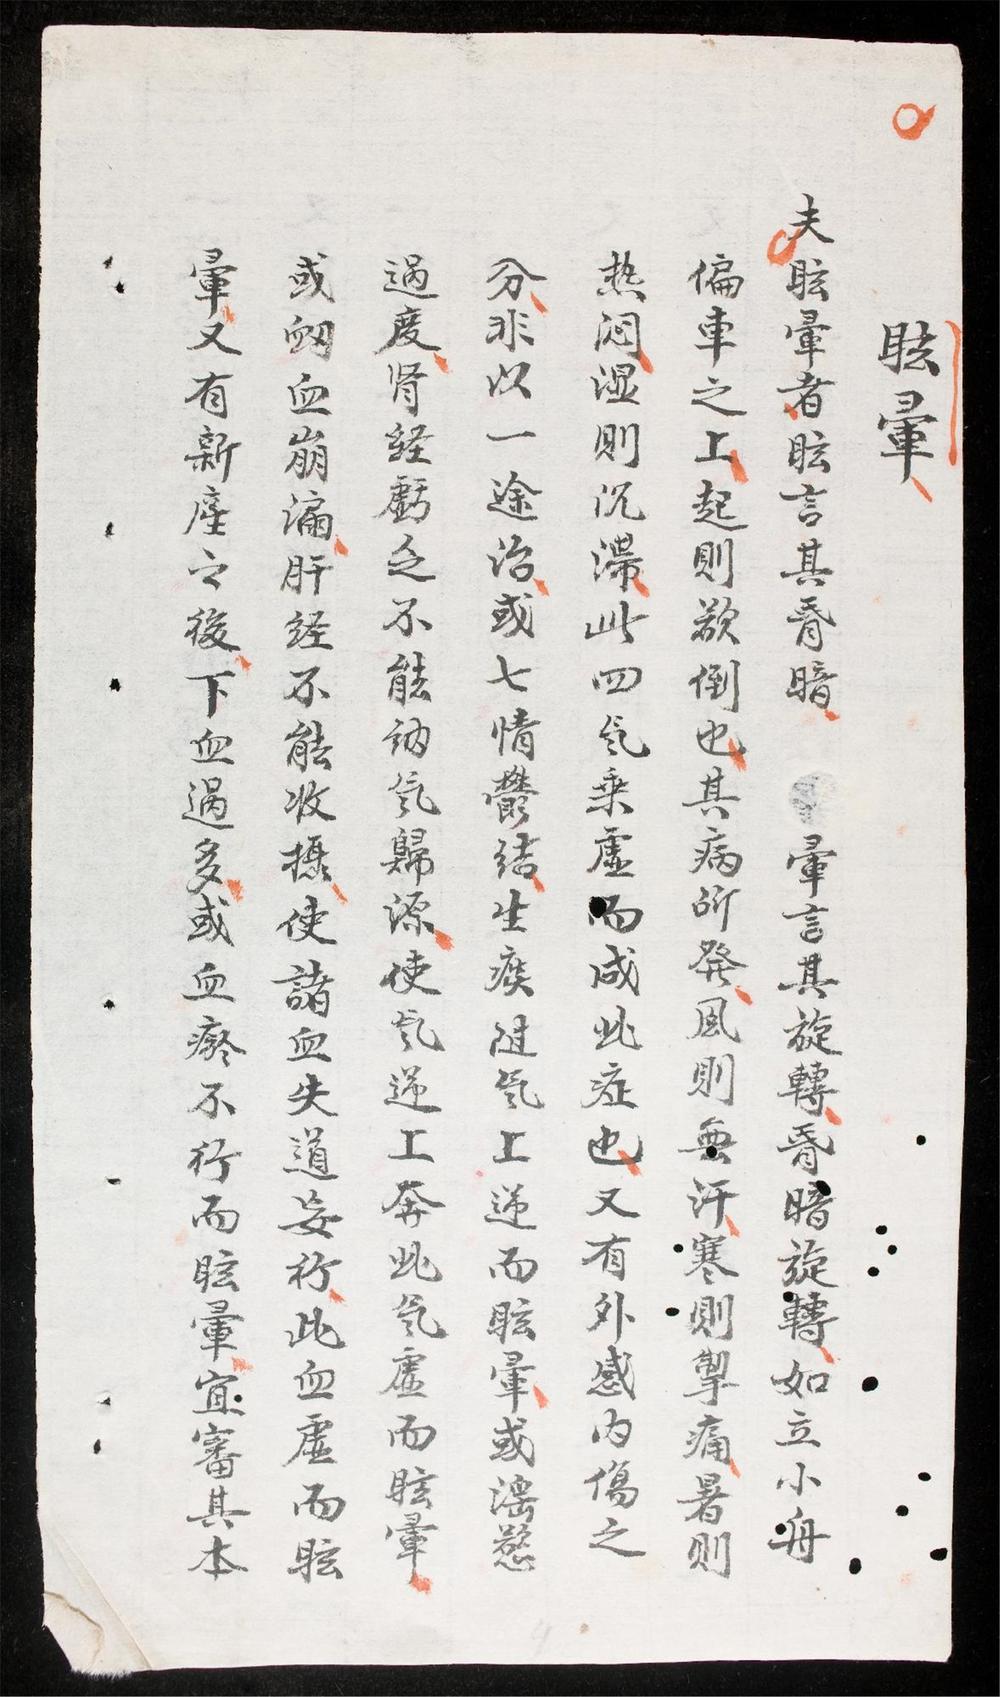 眩暈
夫眩暈者眩言其昏暗暈言其旋轉昏暗旋轉如立小舟
偏車之上起則欲倒也其病所発風則無汗寒則掣痛暑則
热闷湿則沉滯此四気乗虛而成此症也又有外感内傷之
分非以一途治或七情鬱结生痰随気上逆而眩暈或滛慾
過度肾経虧乏不能納気歸源使気逆上奔此気虛而眩暈
或衂血崩漏肝経不能收摄使諸血失道妄行此血虛而眩
暈又有新產之後下血過多或血瘀不行而眩暈宜審其本